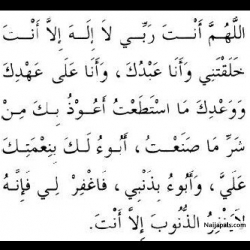 اللَّهُمَّ أَنْتَ رَبِّي لاَ إِلَهَ إِلاَّ أَنْتَ
خَلَقْتَنِي وَأَنَا عَبْدُكَ، وَأَنَا عَلَى عَهْدِكَ
وَوَعْدِكَ مَا اسْتَطَعْتُ أَعُوْذُ بِكَ مِنْ
شَرِّ مَا صَنَعْتُ، أَبُوءُ لَكَ بِنِعْمَتِكَ
عَلَيَّ، وَأَبُوءُ بِذَنْبِي، فَاغْفِرْ لِي فَإِنَّهُ
لاَيَغْفِرُ الذُّنُوبَ إِلاَّ أَنْتَ.
Naijapals.com